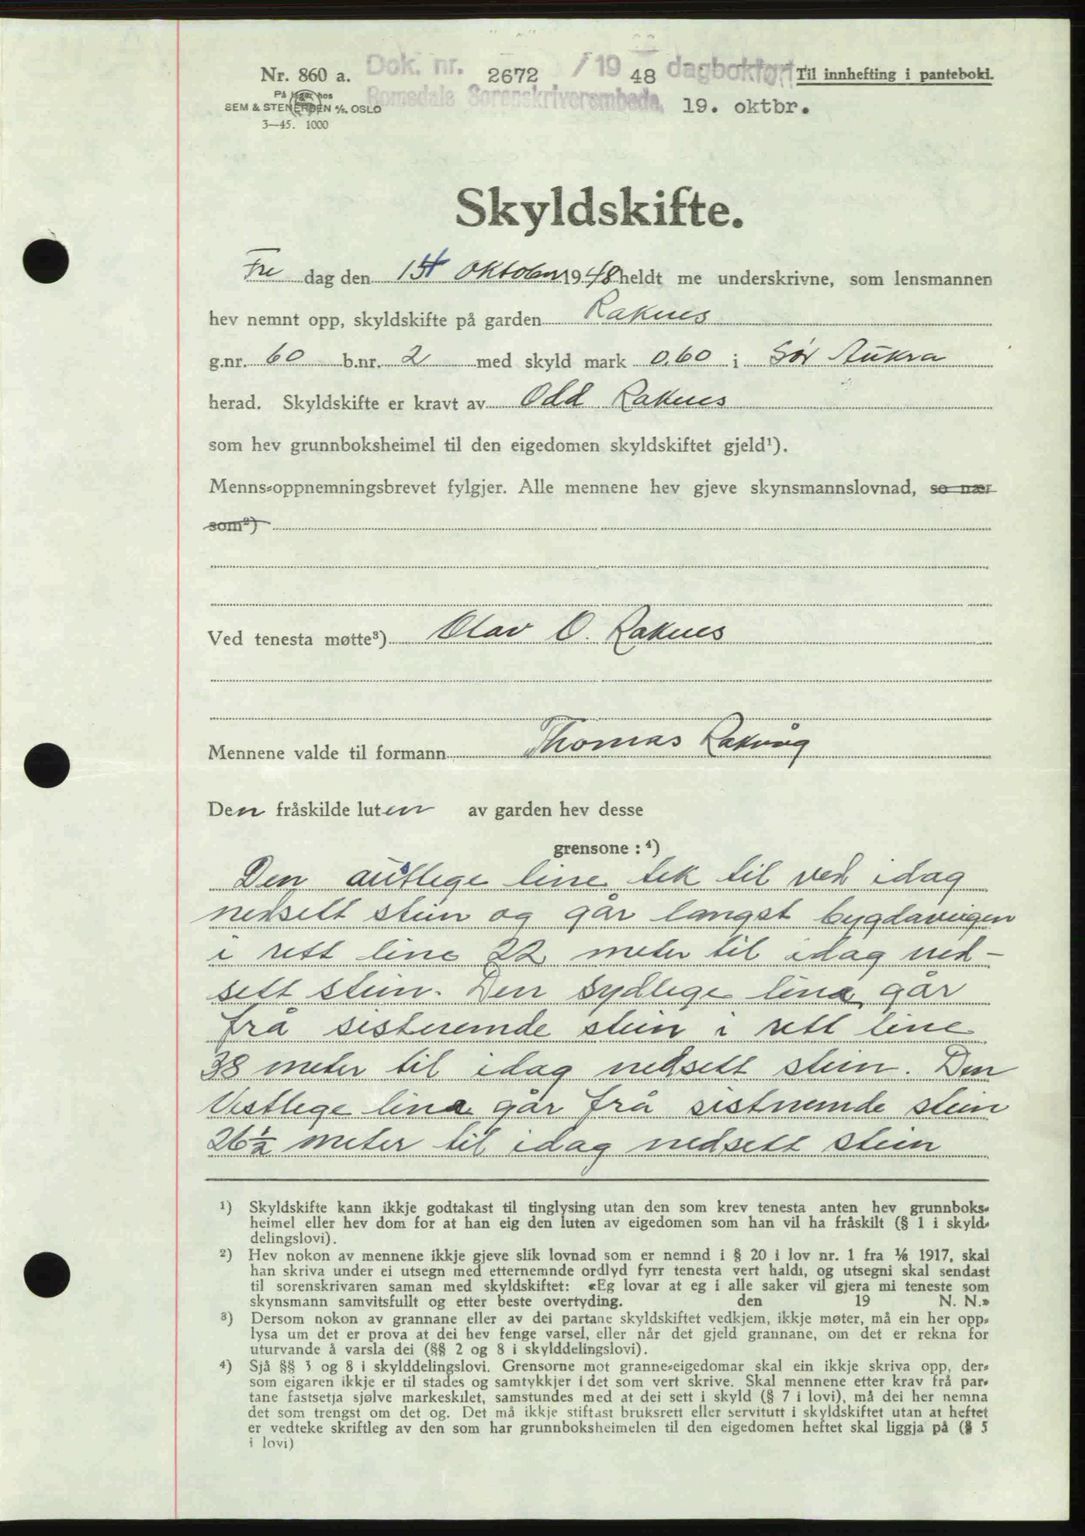 Nr. 860 a.
Dok. nr. 2672 / 19 48 dagbokført
Til innhefting i panteboki.
På lager hos
SEM & STENERSEN A/S, OSLO
3-45. 1000
Romsdals Sorenskriverembede, 19. oktbr.
Skyldskifte.
Fre dag den 15 oktober 1948 heldt me underskrivne, som lensmannen
hev nemnt opp, skyldskifte på garden Raknes
g.nr. 60 b.nr. 2 med skyld mark 0,60 i Sør Aukra
herad. Skyldskifte er kravt av Odd Raknes
som hev grunnboksheimel til den eigedomen skyldskiftet gjeld¹).
Menns-oppnemningsbrevet fylgjer. Alle mennene hev gjeve skynsmannslovnad, so nær
som²)
Ved tenesta møtte³) Olav O. Raknes
Mennene valde til formann Thomas Rakvåg
Den fråskilde luten av garden hev desse
grensone : ⁴)
Den austlege line tek til ved idag
nedsett stein og går langst bygdavegen
i rett line 22 meter til idag ned-
sett stein. Den sydlege lina går
frå sistnemde stein i rett line
38 meter til idag nedsett stein. Den
Vestlege lina går frå sistnemde stein
26½ meter til idag nedsett stein
¹) Skyldskifte kann ikkje godtakast til tinglysing utan den som krev tenesta anten hev grunnboks-
heimel eller hev dom for at han eig den luten av eigedomen som han vil ha fråskilt (§ 1 i skyld-
delingslovi).
²) Hev nokon av mennene ikkje gjeve slik lovnad som er nemnd i § 20 i lov nr. 1 fra 1/6 1917, skal
han skriva under ei utsegn med etternemnde ordlyd fyrr tenesta vert haldi, og utsegni skal sendast
til sorenskrivaren saman med skyldskiftet: «Eg lovar at eg i alle saker vil gjera mi teneste som
skynsmann samvitsfullt og etter beste overtyding. den 19 N. N.»
³) Dersom nokon av grannane eller av dei partane skyldskiftet vedkjem, ikkje møter, må ein her opp-
lysa um det er prova at dei hev fenge varsel, eller når det gjeld grannane, om det er rekna for
uturvande å varsla dei (§§ 2 og 8 i skylddelingslovi).
⁴) Sjå §§ 3 og 8 i skylddelingslovi. Grensorne mot granne-eigedomar skal ein ikkje skriva opp, der-
som eigaren ikkje er til stades og samtykkjer i det som vert skrive. Skal mennene etter krav frå par-
tane fastsetja sjølve markeskilet, samstundes med at dei sett i skyld (§ 7 i lovi), må dei her nemna
det som trengst om det og. Det må ikkje stiftast bruksrett eller servitutt i skyldskiftet utan at heftet
er vedteke skriftleg av den som har grunnboksheimelen til den eigedomen heftet skal liggja på (§ 5
i lovi)